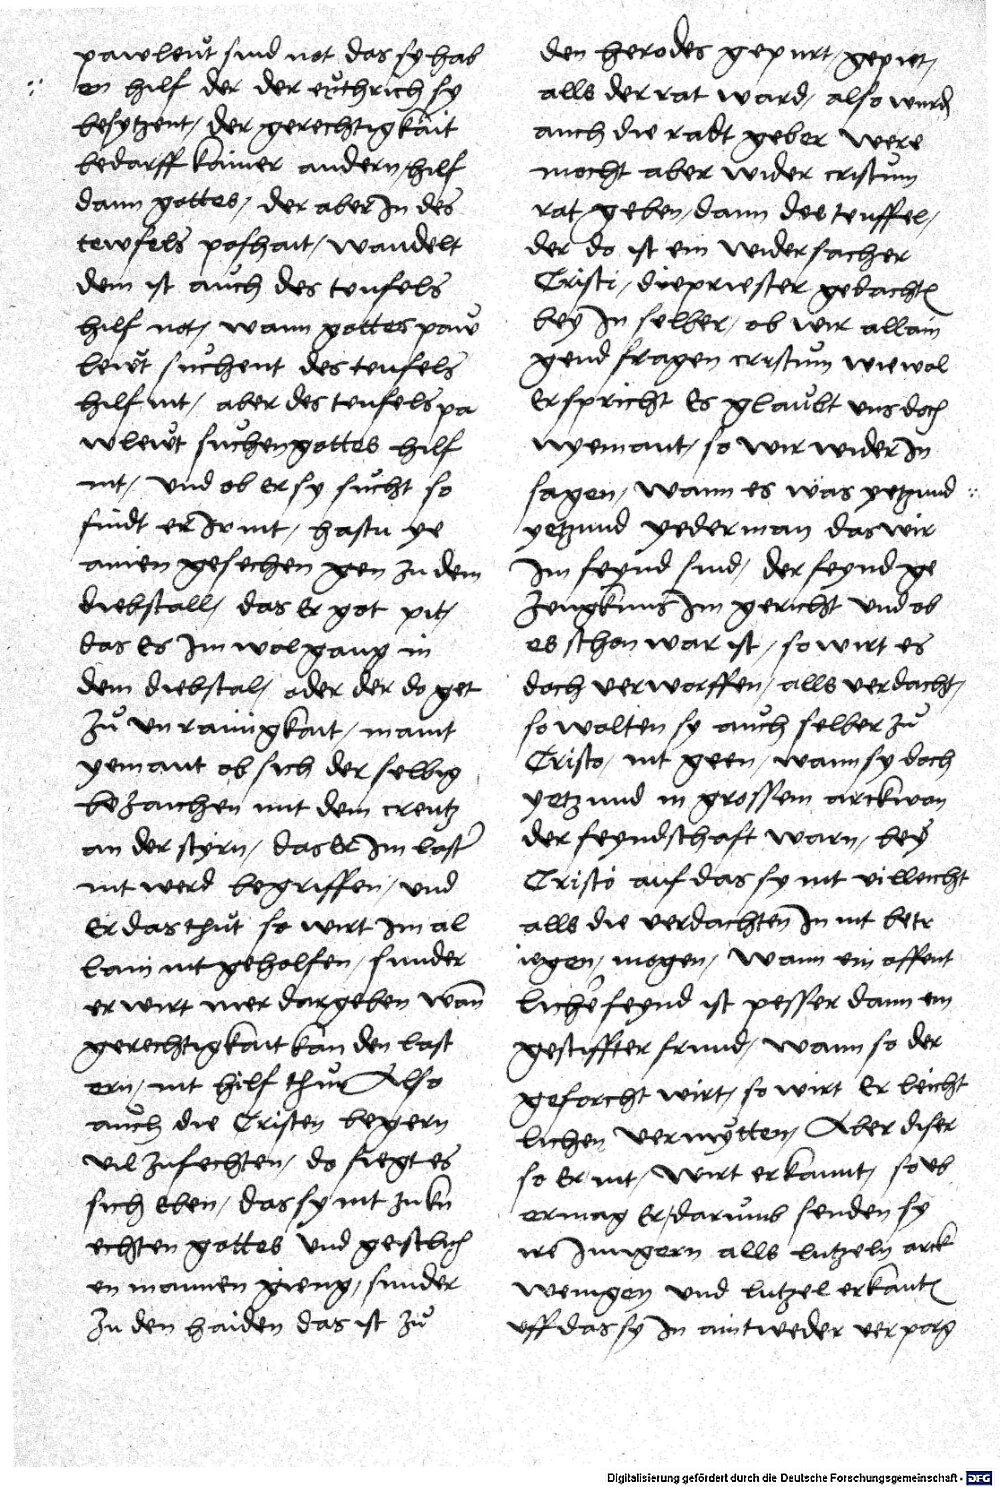 pawleut sind not das sy hab
en hilf der der ertthrich sy
besytzent / der gerechtigkait
bedarff kainer andern / hilf
dann gottes / der aber In des
tewfels poshait / wandelt
dem ist auch des teufels
hilf not / wann gottes paw
lewt suchent des teufels
hilf nit / aber des teufels pa
wlewt suchen gottes hilf
nit / und ob er sy sucht so
findt er Ir nit / hastu ye
ainen gesechen gen zu dem
diebstall / das er got pit /
das es Im wol gang in
dem diebstal / oder der do get
Zu unrainigkait / maint
yemant ob sich der selbig
bezaichen mit dem creutz
an der styrn / das er Im last
nit werd begriffen / und
Er das thut so wirt Im al
lain nit geholfen / sunder
er wirt mer dargeben wan
gerechtigkait kan den last
ern / nit hilf thun Also
auch die Cristen begern
vil zufechten / do fiegt es
sich eben / das sy nit zu kn
echten gottes und geistlich
en mannen gieng / sunder
Zu den haiden das ist Zu
den herodes gepurt / gepiet /
alls der rat ward / also wurd
auch die radt geber were
mocht aber wider cristum
rat / geben / dann des teuffel /
der do ist ein widersacher
Cristi / die priester gedachte
bey In selber / ob wir allain
gend fragen cristum wiewol
Er spricht Es glaubt uns doch
nyemant / so wir wider In
sagen / wann es was yetzund
yetzund yederman das wir
Im feynd sind / der feynd ge
Zeugknus Im gericht und ob
es schon war ist / so wirt es
doch verworffen / alls verdacht /
so wolten sy auch selber zu
Cristo / nit geen / wann sy doch
yetzund in grossem arckwon
der feyndschaft warn / bey
Cristo auf das sy nit villeicht
alls die verdachten In nit betr
iegen / mogen / wann ein offent
licher feynd ist pesser dann ein
gestiffter frund / wann so der
geforcht wirt / so wirt Er leicht
lichen vermytten / Aber diser
so er nit / wirt erkannt / so vb
ermag Er / darumb senden sy
ire Jungern alls lutzeln arck
wenigen und lutzel erkante
uff das sy In aintweder verporg
Digitalisierung gefördert durch die Deutsche Forschungsgemeinschaft - DFG